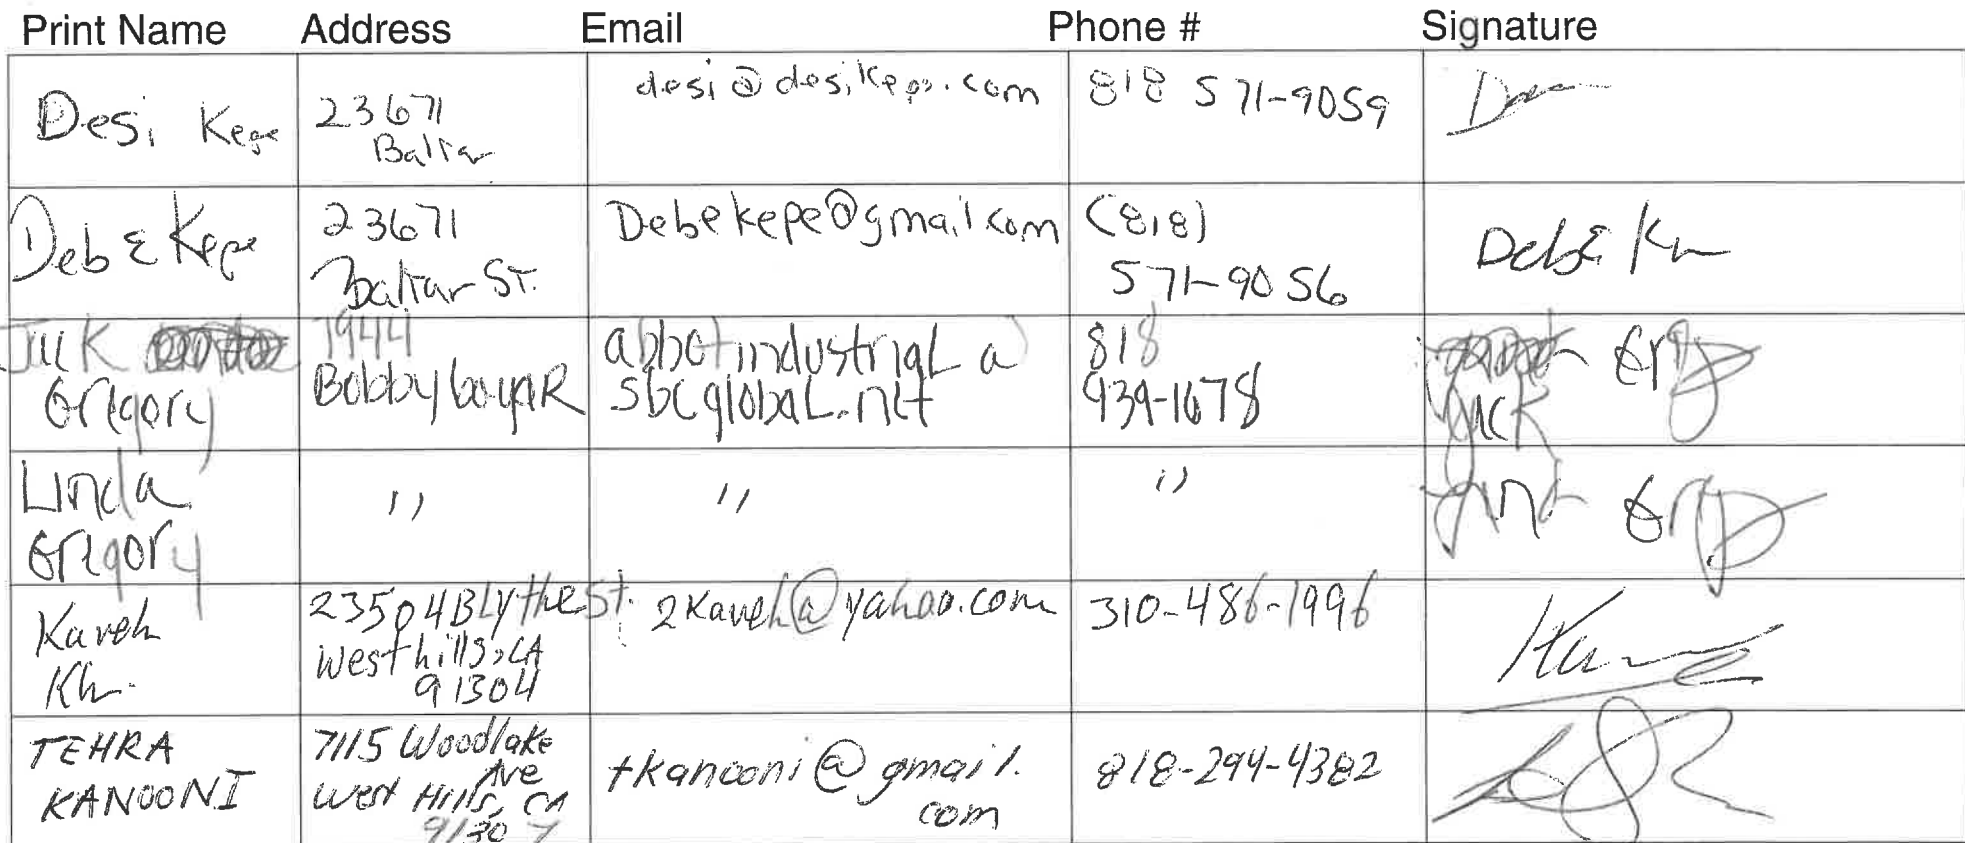 Print Name Address Email Phone # Signature
Desi Kepe 23671 Baltar desi@desikepe.com 818 571-9059
Deb E Kepe 23671 Baltar St. Debekepe@gmail.com (818) 571-9056 Deb E
Jack Gregory 7944 Bobbyboyar abbotindustrial a sbcglobal.net 818 939-1678 Jack
Linda Gregory " " "
Kaveh Kh. 23504 Blythe St. West hills, CA 91304 2kaveh@yahoo.com 310-486-1996
TEHRA KANOONI 7115 Woodlake Ave West Hills, CA 91307 tkanooni@gmail.com 818-294-4382